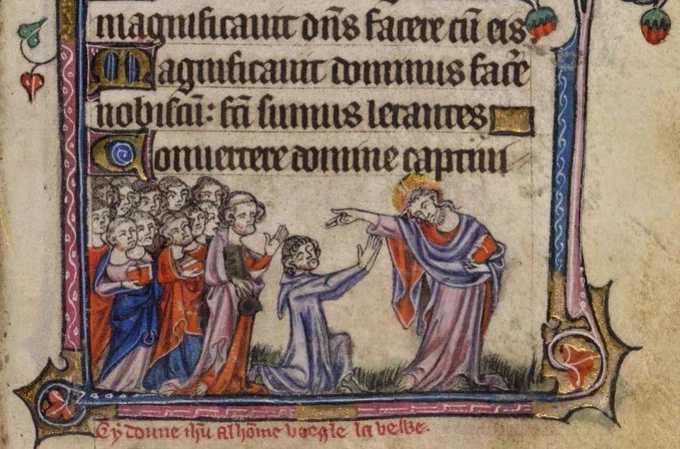 magnificavit dn̄s facere cū eis
Magnificavit dominus facẽ
nobiscū: fc̄i sumus letantes
Convertere domine captivi
Cy doune ihū al hōme voegle la velwe.